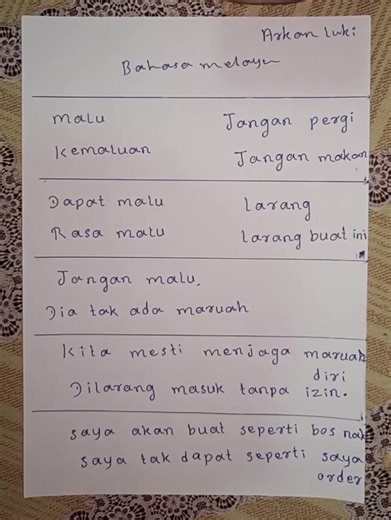 Arkan Luki
Bahasa melayu
malu Jangan pergi
Kemaluan Jangan makan
Dapat malu larang
Rasa malu larang buat ini
Jangan malu.
Dia tak ada maruah
Kita mesti menjaga maruah
diri
Dilarang masuk tanpa izin.
saya akan buat seperti bos nak
saya tak dapat seperti saya
order